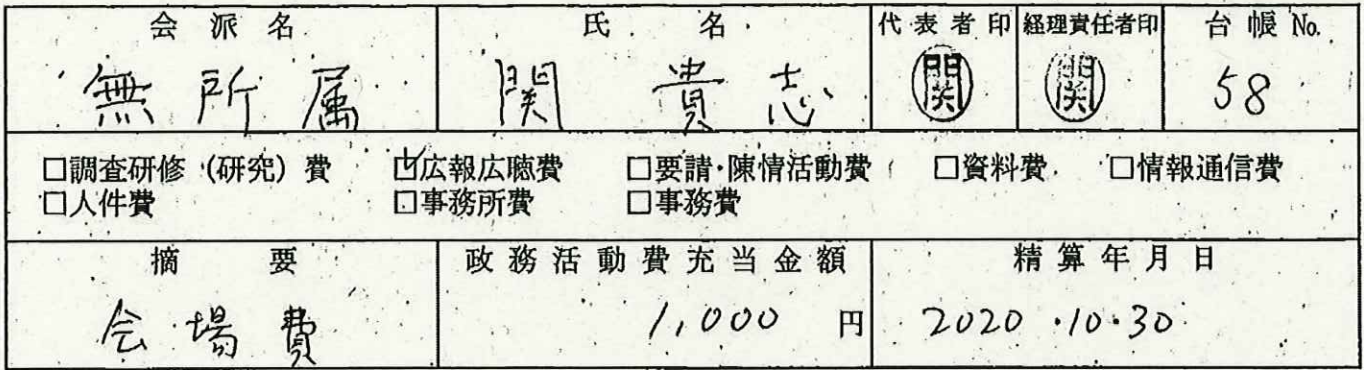 会派名 氏名 代表者印 経理責任者印 台帳No.
無所属 関 貴志 関 関 58
□調査研修（研究）費 ☑広報広聴費 □要請・陳情活動費 □資料費 □情報通信費
□人件費 □事務所費 □事務費
摘要 政務活動費充当金額 精算年月日
会場費 1,000 円 2020・10・30